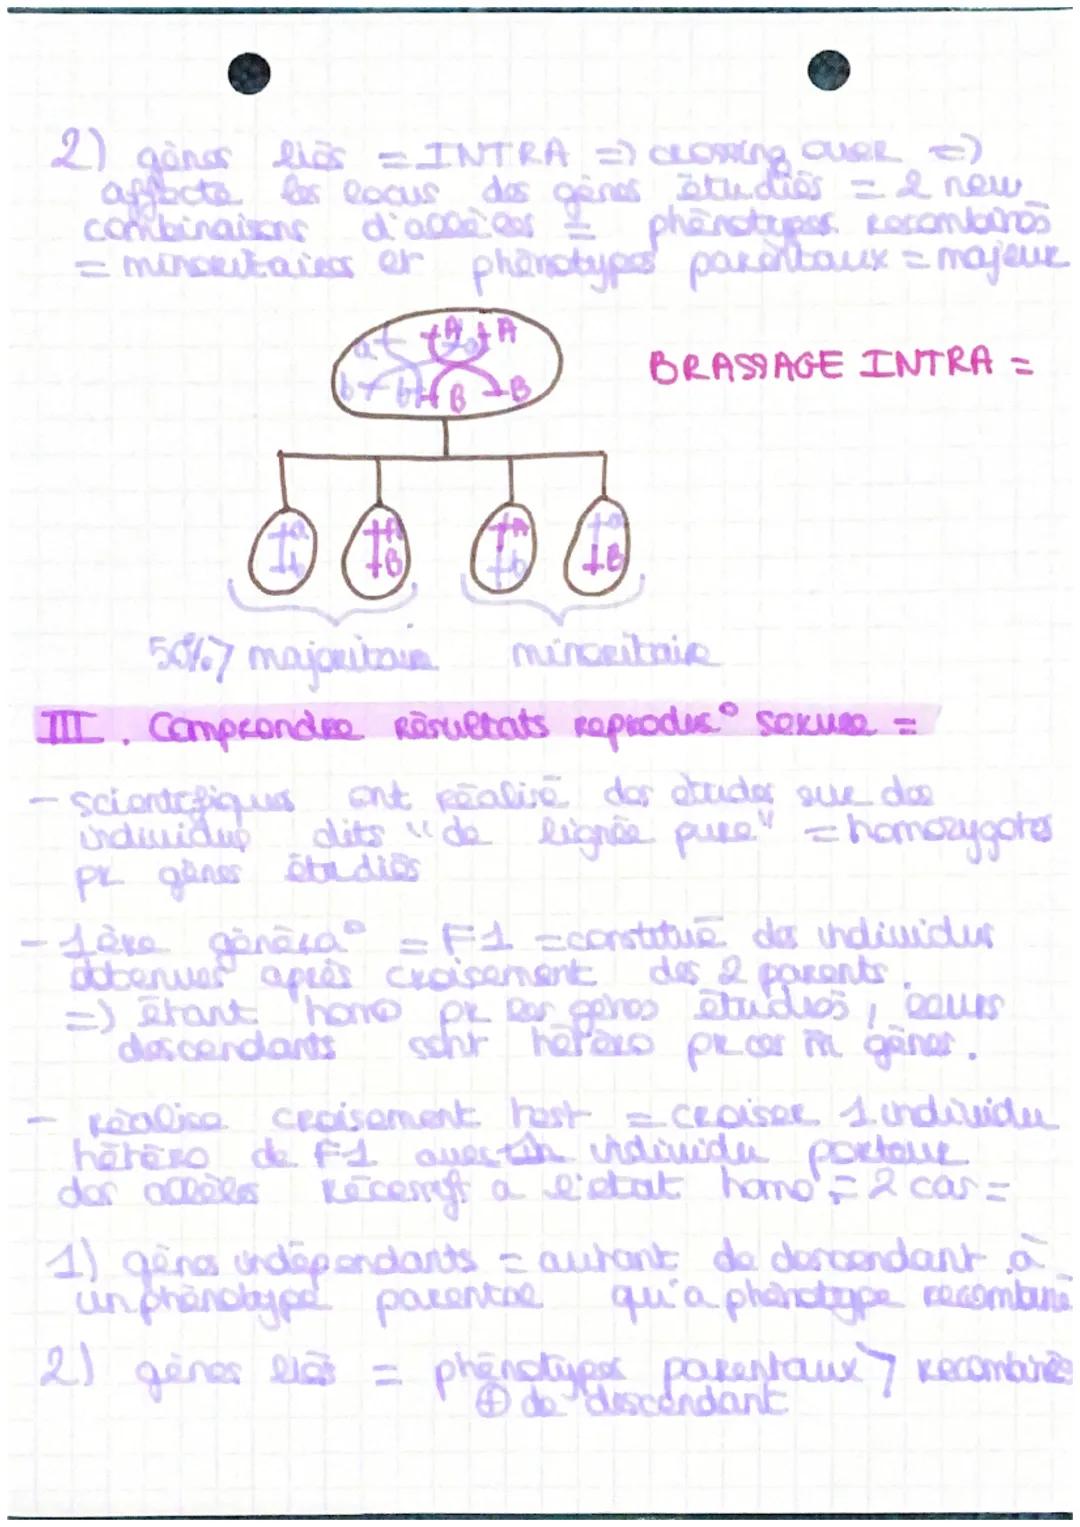 2) gènes liés = INTRA => crossing over =>
affecte les locus des gènes étudiés = 2 new
combinaisons d'allèles = phénotypes recombinés
= minoritaires et phénotypes parentaux = majeur
a A A
b b B B
BRASSAGE INTRA =
a A A a
b B b B
50% > majoritaire minoritaire
III. Comprendre résultats reproduc° sexuée =
- scientifiques ont réalisé des études sur des
individus dits "de lignée pure" = homozygotes
pr gènes étudiés
- 1ère généra° = F1 = constitué des individus
obtenues après croisement des 2 parents.
=> étant homo pr les gènes étudiés, leurs
descendants sont hétéro pr ces m̂ gènes.
- réalise croisement test = croiser 1 individu
hétéro de F1 avec un individu porteur
des allèles récessifs a l'etat homo = 2 cas =
1) gènes indépendants = autant de descendant à
un phénotype parental qu'a phénotype recombiné
2) gènes liés = phénotypes parentaux > recombinés
⊕ de descendant